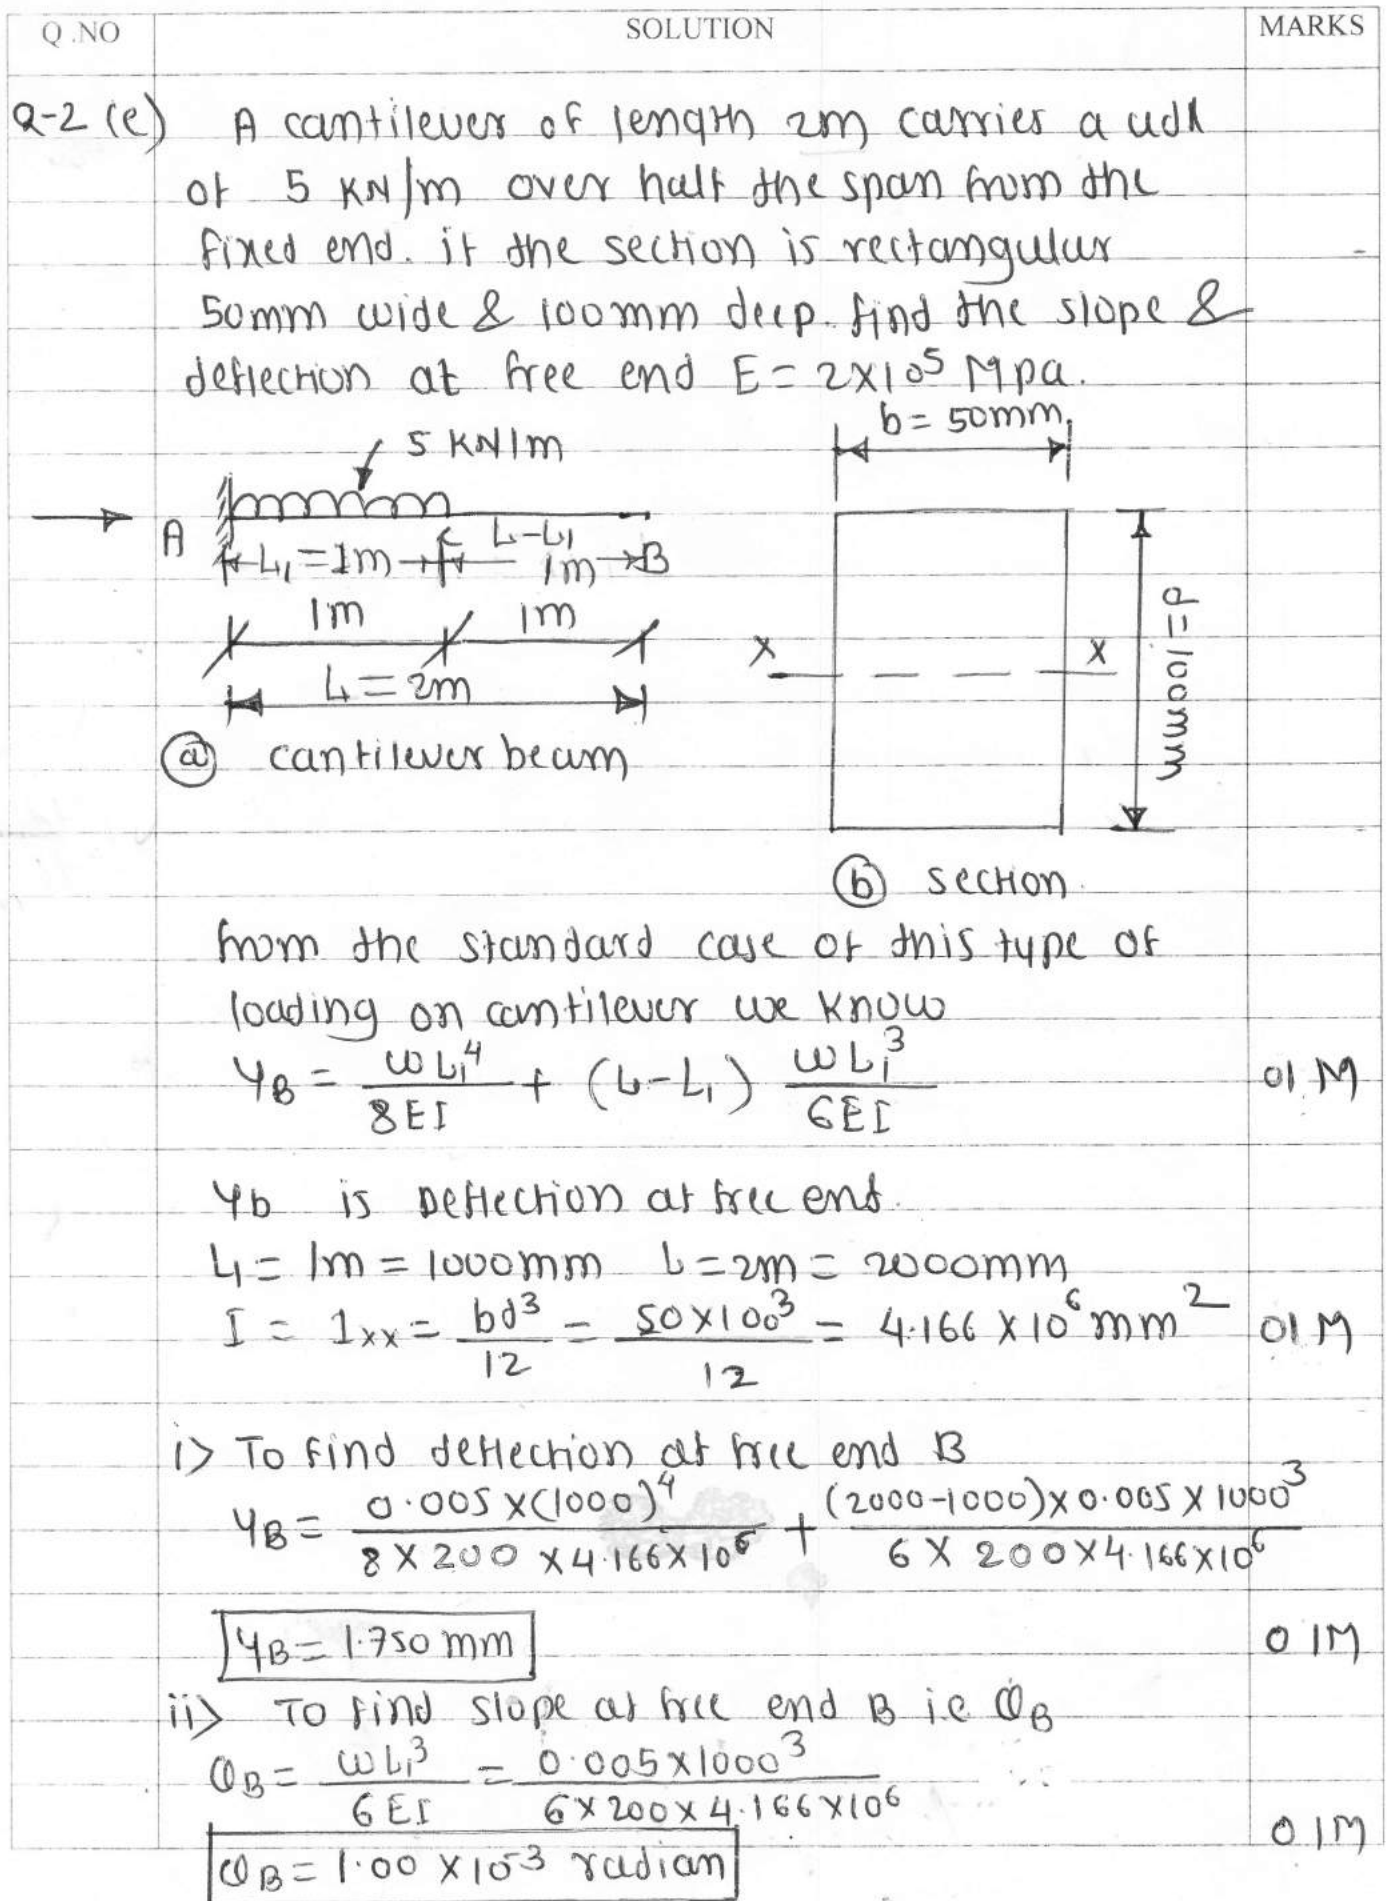 Q.NO SOLUTION MARKS
Q-2 (e) A cantilever of length 2m carries a udl
of 5 KN/m over half the span from the
fixed end. if the section is rectangular
50mm wide & 100mm deep. find the slope &
deflection at free end E = 2×10⁵ Mpa.
b = 50mm
5 KN/m
A
L₁ = 1m
C
L-L₁
1m
B
1m 1m
L = 2m
ⓐ cantilever beam
X X
d = 100mm
ⓑ section
from the standard case of this type of
loading on cantilever we know
yB = ωL₁⁴/8EI + (L-L₁) ωL₁³/6EI 01 M
yb is Deflection at free end.
L₁ = 1m = 1000mm L = 2m = 2000mm
I = Ixx = bd³/12 = 50×100³/12 = 4.166 × 10⁶ mm² 01 M
i> To find deflection at free end B
yB = 0.005×(1000)⁴/8×200×4.166×10⁶ + (2000-1000)×0.005×1000³/6×200×4.166×10⁶
yB = 1.750 mm 01M
ii> To find slope at free end B i.e θB
θB = ωL₁³/6EI = 0.005×1000³/6×200×4.166×10⁶
θB = 1.00 × 10⁻³ radian 01M